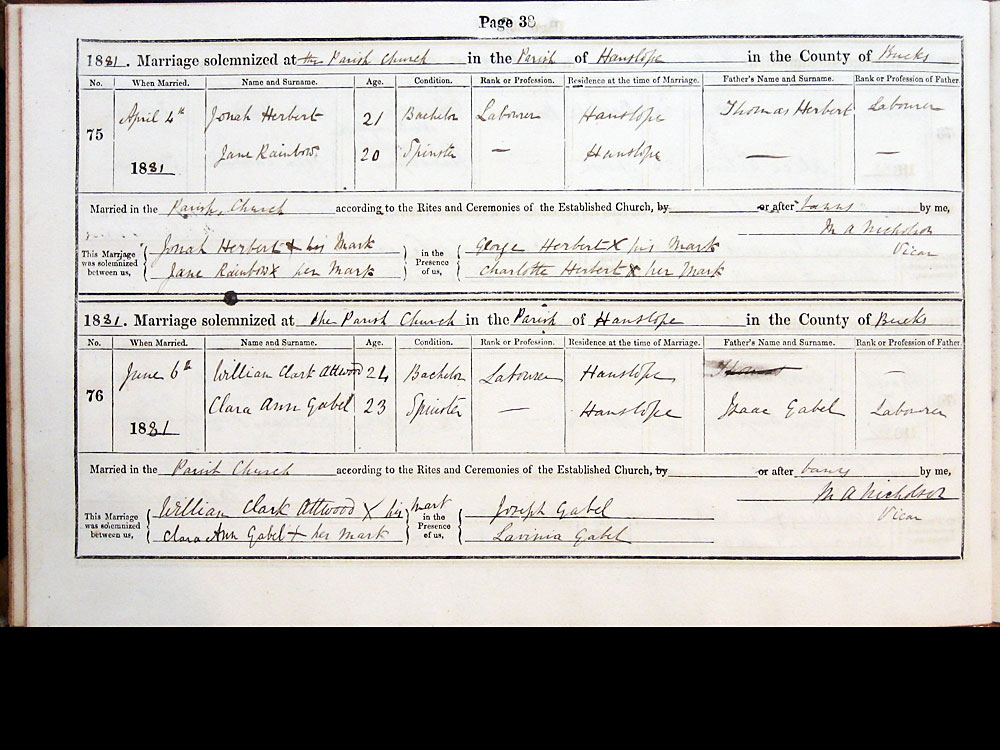 Page 38
1881. Marriage solemnized at the Parish Church in the Parish of Hanslope in the County of Bucks
No. When Married. Name and Surname. Age. Condition. Rank or Profession. Residence at the time of Marriage. Father's Name and Surname. Rank or Profession of Father.
75 April 4th Jonah Herbert 21 Bachelor Labourer Hanslope Thomas Herbert Labourer
1881 Jane Rainbow 20 Spinster — Hanslope — —
Married in the Parish Church according to the Rites and Ceremonies of the Established Church, by or after banns by me,
M A Nicholson
Vicar
This Marriage was solemnized between us, Jonah Herbert X his Mark in the Presence of us, George Herbert X his Mark
Jane Rainbow X her Mark Charlotte Herbert X her Mark
1881. Marriage solemnized at the Parish Church in the Parish of Hanslope in the County of Bucks
No. When Married. Name and Surname. Age. Condition. Rank or Profession. Residence at the time of Marriage. Father's Name and Surname. Rank or Profession of Father.
76 June 6th William Clark Attwood 24 Bachelor Labourer Hanslope Thomas —
1881 Clara Ann Gabel 23 Spinster — Hanslope Isaac Gabel Labourer
Married in the Parish Church according to the Rites and Ceremonies of the Established Church, by or after banns by me,
M A Nicholson
Vicar
This Marriage was solemnized between us, William Clark Attwood X his Mark in the Presence of us, Joseph Gabel
Clara Ann Gabel X her Mark Lavinia Gabel